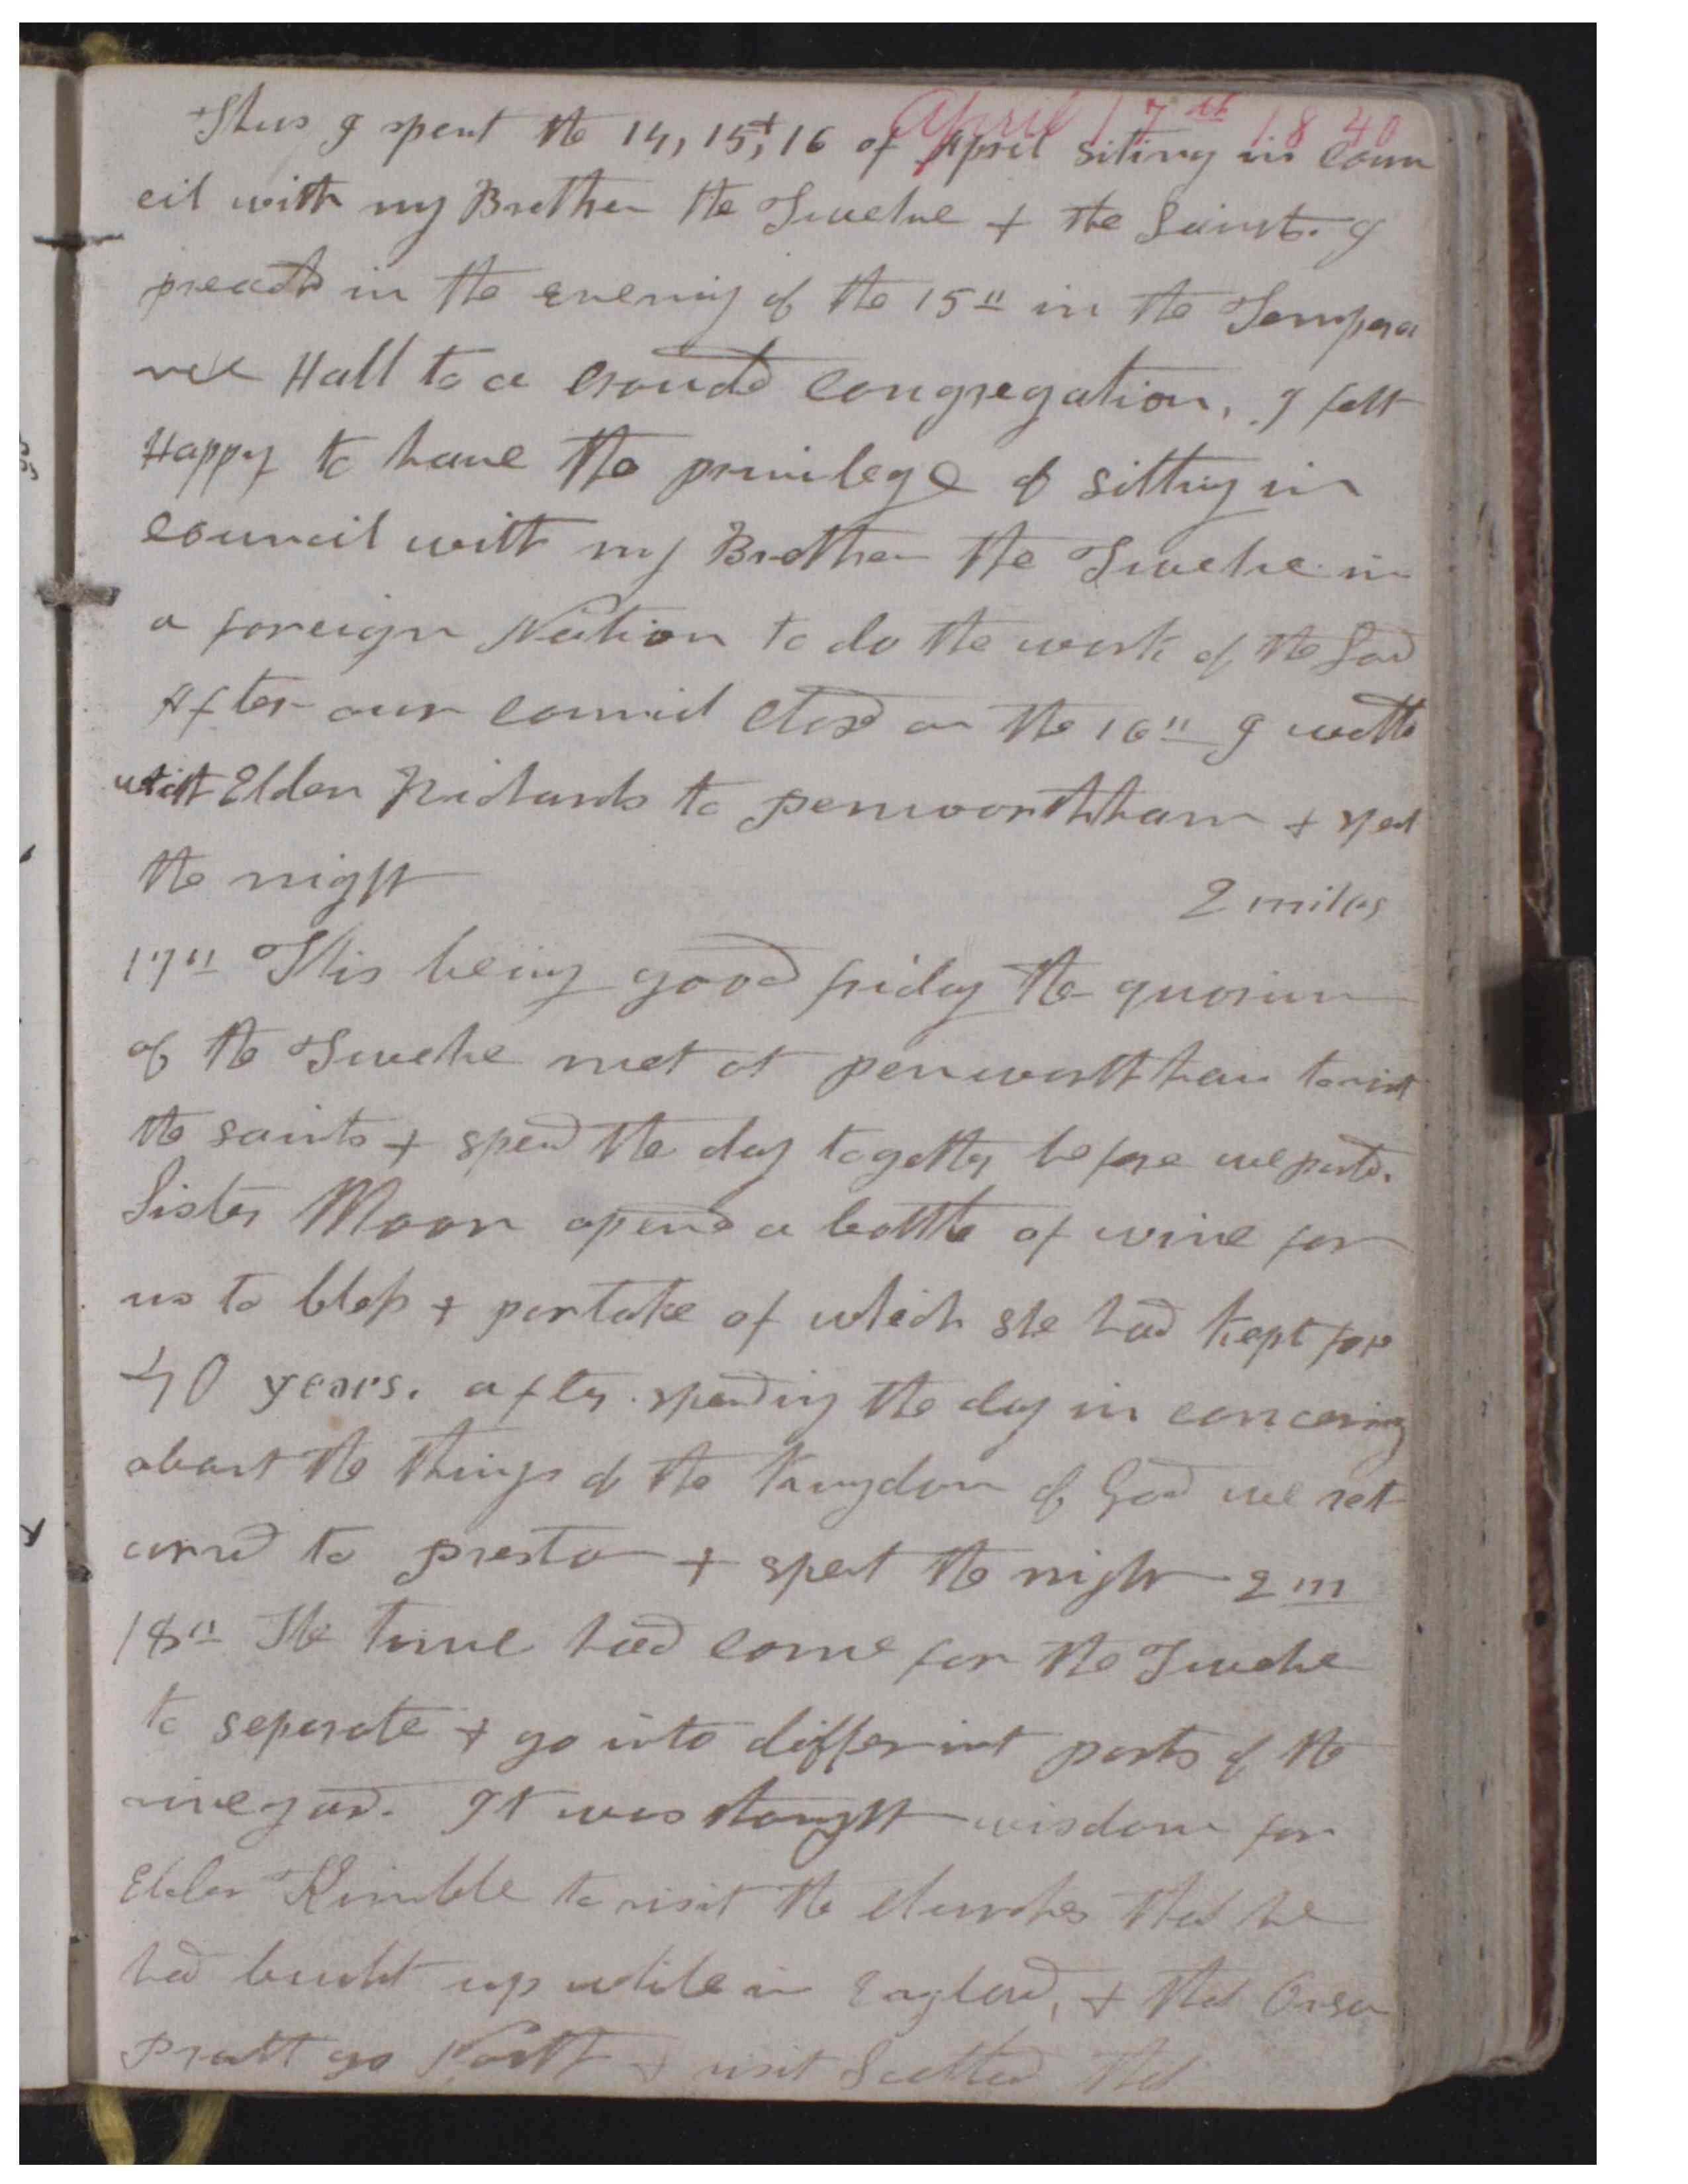 April 17th 1840
Thus I spent the 14, 15, + 16 of April siting in coun
cil with my Brethren the Twelve + the Saints. I
preachd in the evening of the 15" in the Tempera
nce Hall to a croud congregation, I felt
Happy to have the privilege of sitting in
council with my Brethren the Twelve in
a foreign Nation to do the work of the Lord
After our council closd on the 16" I walkd
with Elder Richards to penworthham + spent
the night 2 miles
17" This being good friday the quorum
of the Twelve met at penworthham to visit
the saints + spend the day together before we parted.
Sister Moon opend a bottle of wine for
us to bless + partake of which she had kept for
40 years. after spending the day in concering
about the things of the kingdom of God we ret
urnd to preston + spent the night 2 m
18" The time had come for the Twelve
to seperate + go into differint parts of the
vineyard. It was thought wisdom for
Elder Kimble to visit the churches that he
had built up while in England, + that Orson
Pratt go North + visit Scotland that